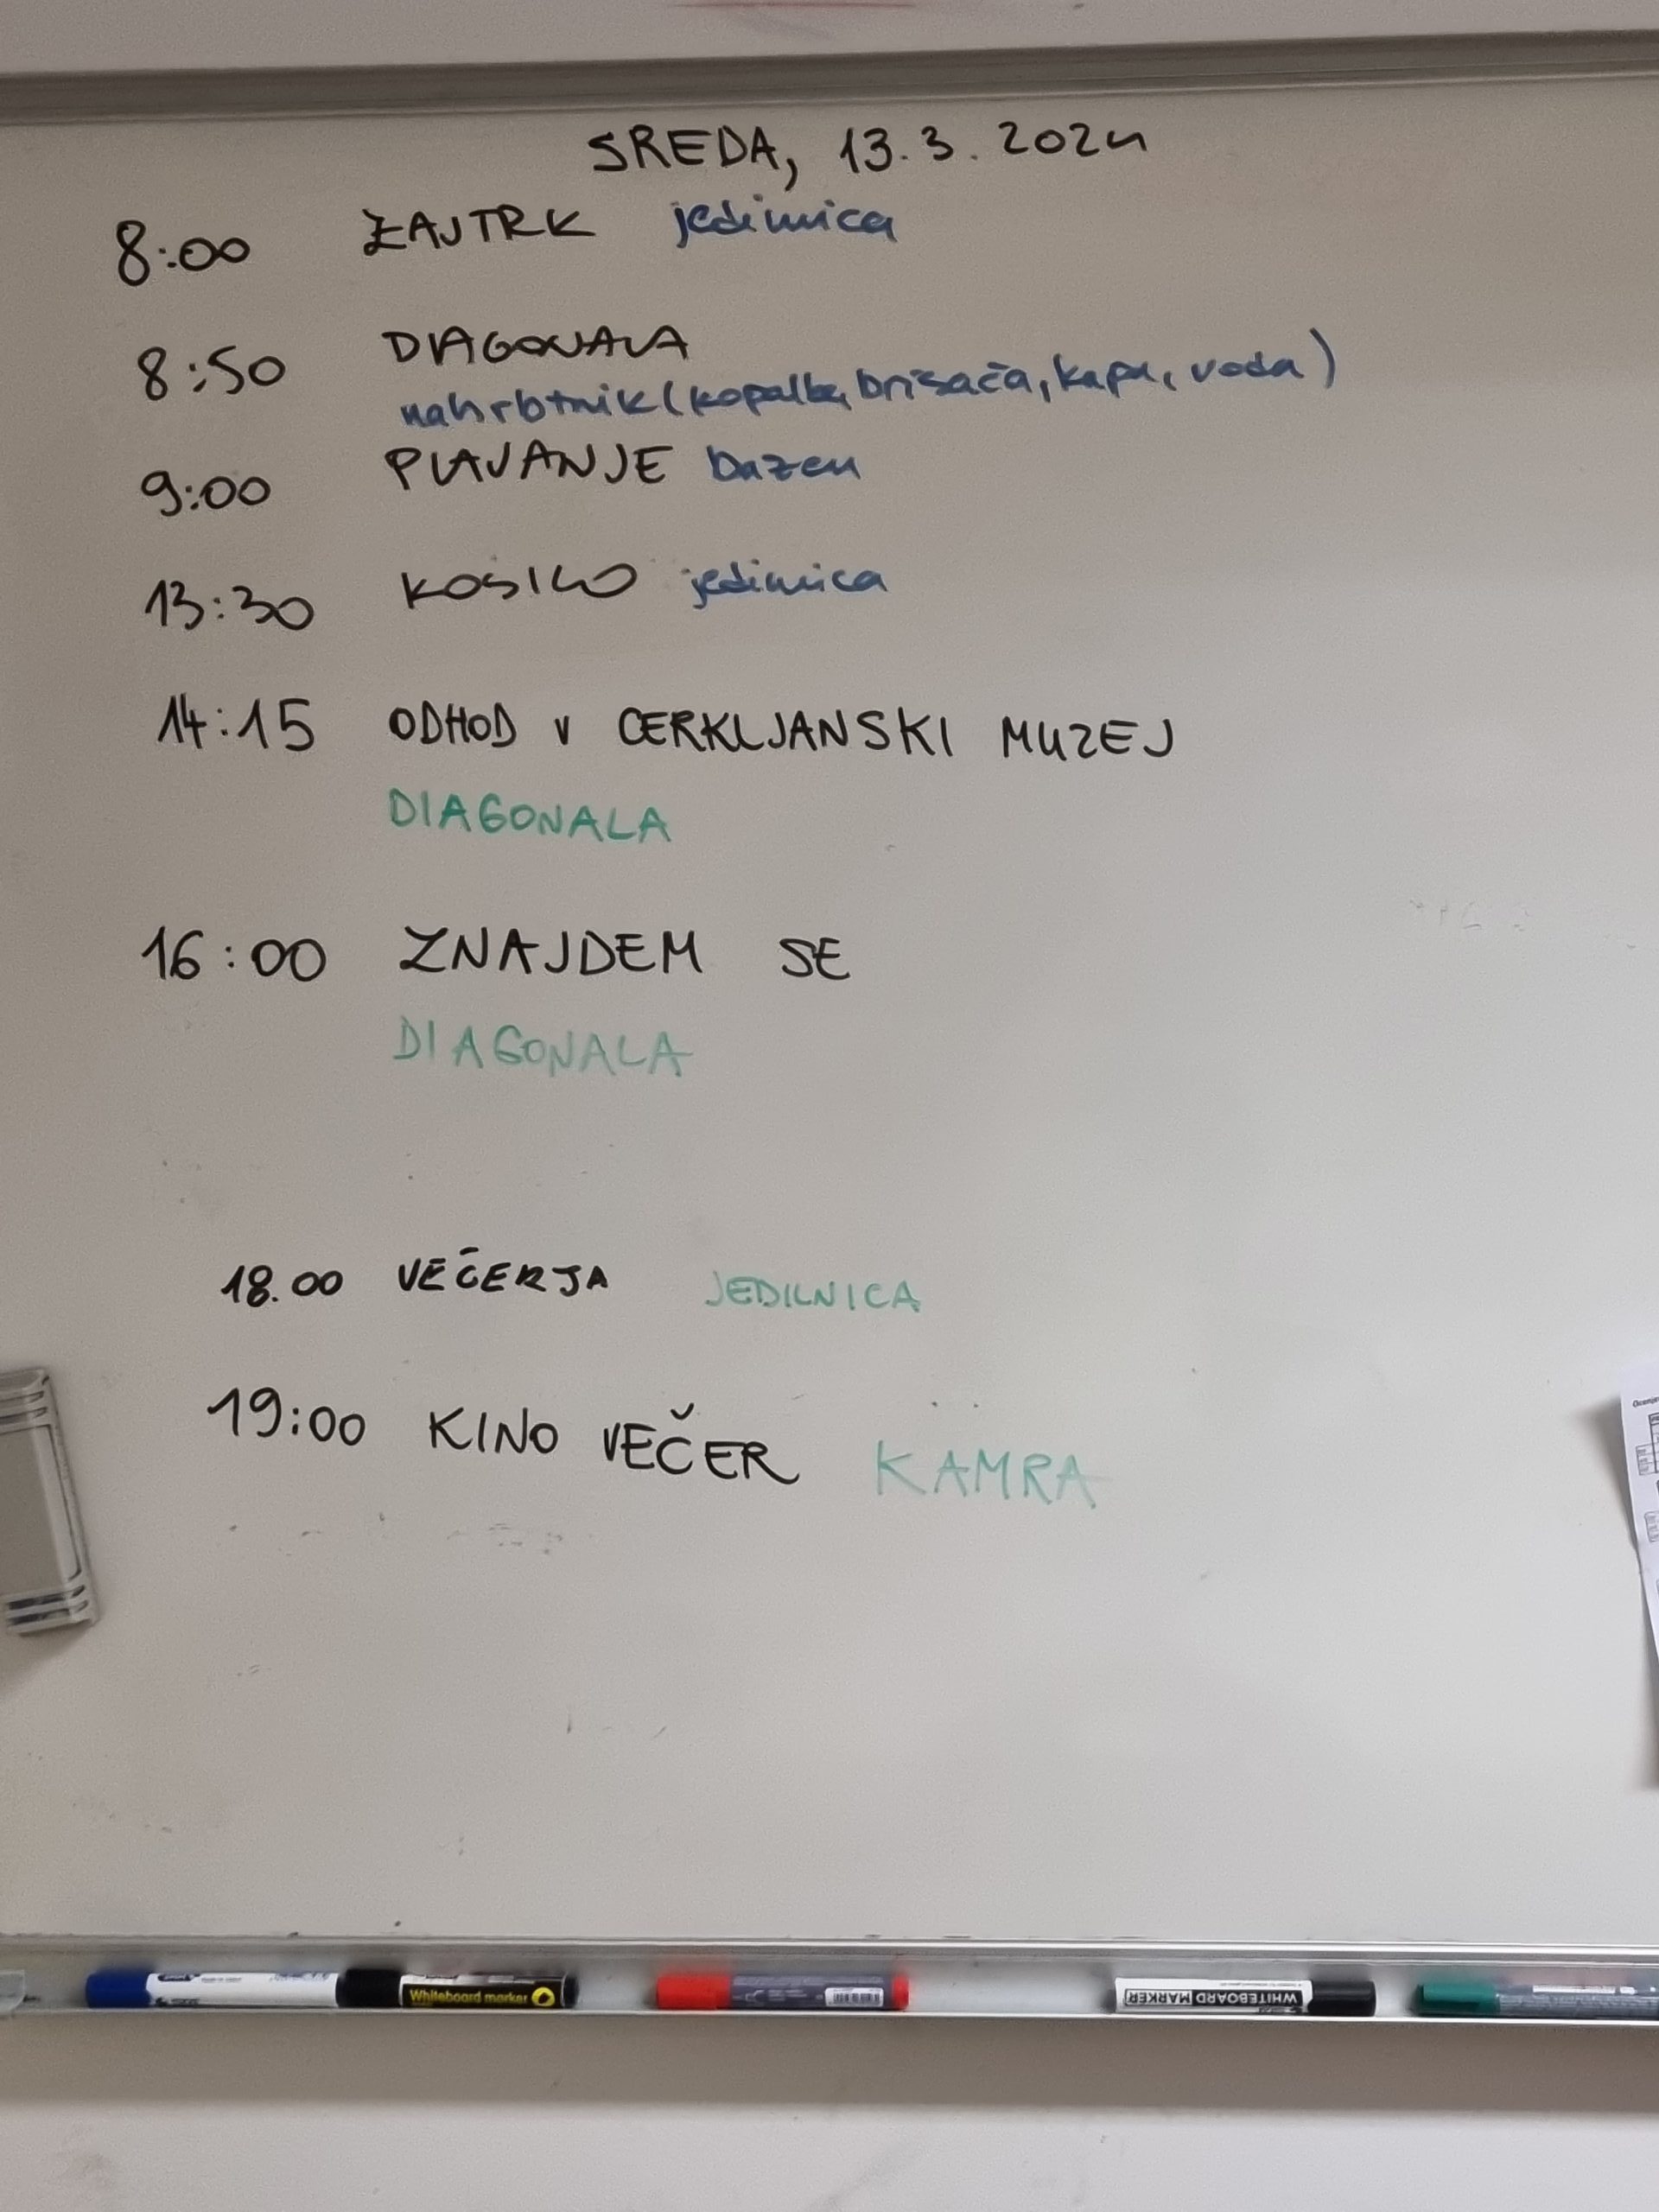 SREDA, 13.3.2024
8:00 ZAJTRK jedilnica
8:50 DIAGONALA
nahrbtnik (kopalke, brisača, kapa, voda)
9:00 PLAVANJE bazen
13:30 KOSILO jedilnica
14:15 ODHOD V CERKLJANSKI MUZEJ
DIAGONALA
16:00 ZNAJDEM SE
DIAGONALA
18.00 VEČERJA JEDILNICA
19:00 KINO VEČER KAMRA
Whiteboard marker
WHITEBOARD MARKER